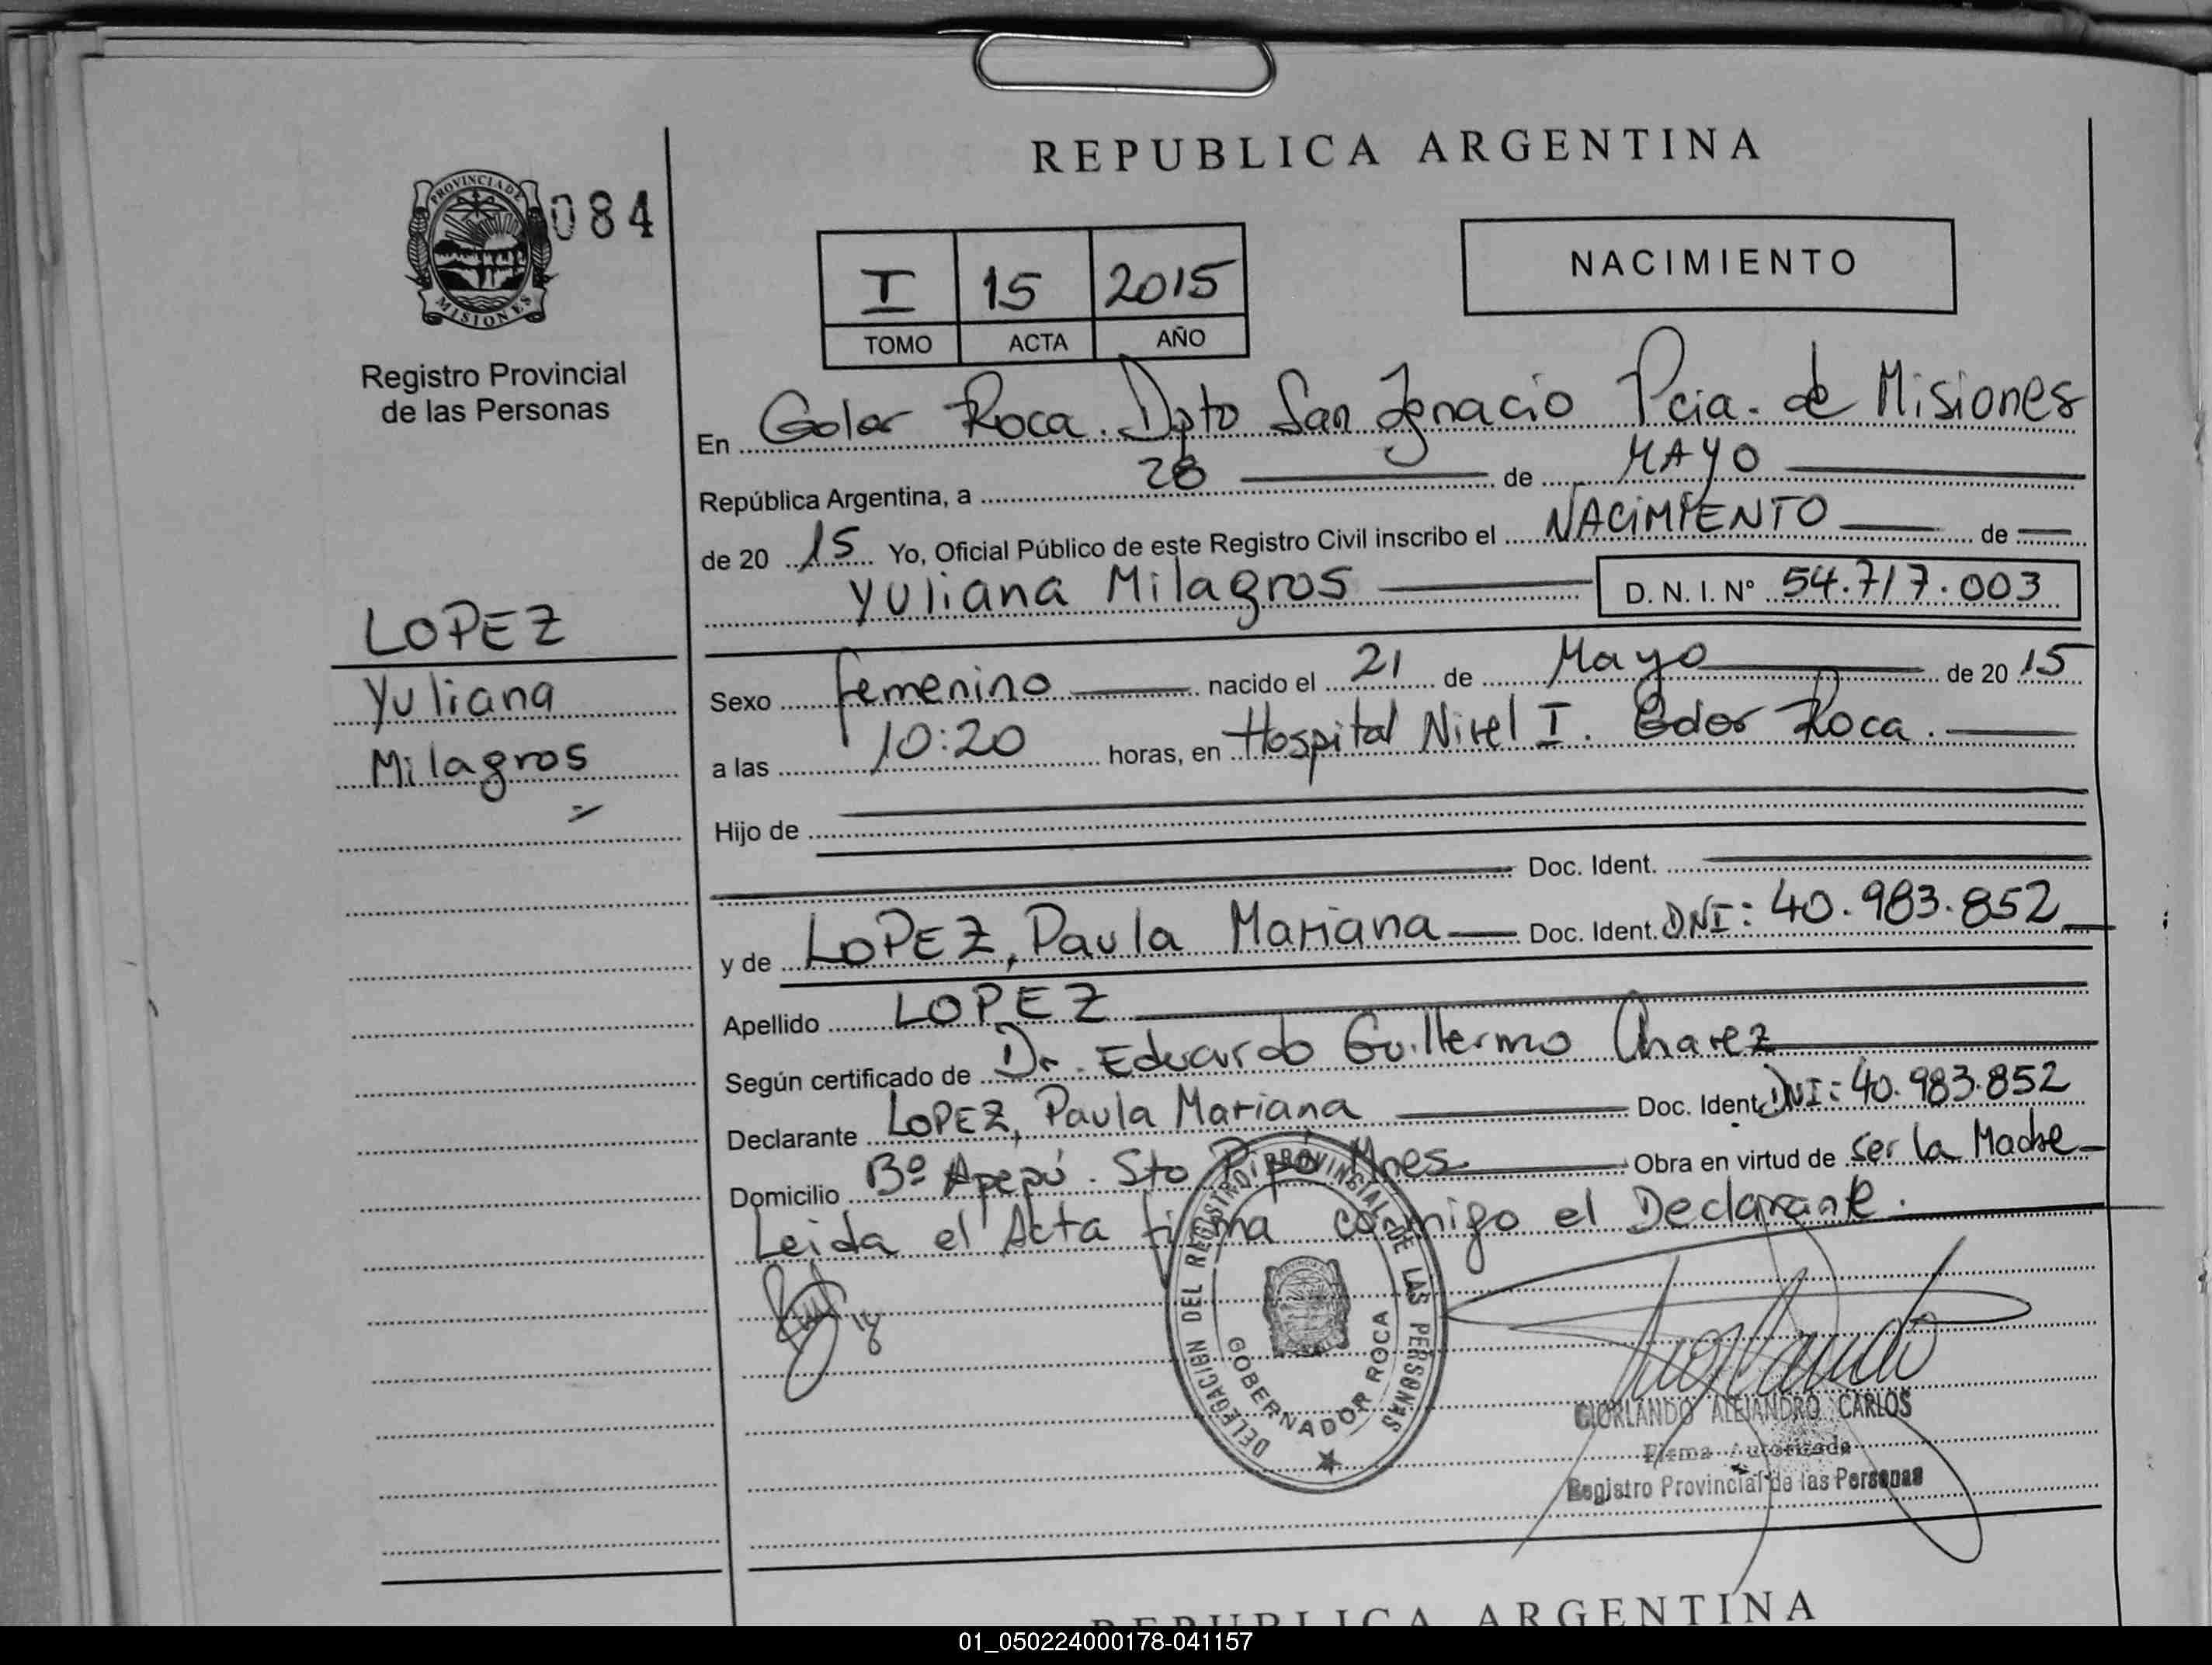 REPUBLICA ARGENTINA
PROVINCIA DE
MISIONES
084
I 15 2015
TOMO ACTA AÑO
NACIMIENTO
Registro Provincial
de las Personas
En Gdor Roca. Dpto San Ignacio Pcia. de Misiones
República Argentina, a 28 de MAYO
de 20 15 Yo, Oficial Público de este Registro Civil inscribo el NACIMIENTO de
Yuliana Milagros D. N. I. Nº 54.717.003
LOPEZ
Yuliana
Milagros
Sexo femenino nacido el 21 de Mayo de 20 15
a las 10:20 horas, en Hospital Nivel I. Gdor Roca.
Hijo de
Doc. Ident.
y de LOPEZ, Paula Mariana Doc. Ident. DNI: 40.983.852
Apellido LOPEZ
Según certificado de Dr. Eduardo Guillermo Chavez
Declarante LOPEZ, Paula Mariana Doc. Ident. DNI: 40.983.852
Domicilio Bº Apepú. Sto Pipó Mnes Obra en virtud de ser la Madre
Leida el Acta firma conmigo el Declarante.
DELEGACION DEL REGISTRO PROVINCIAL DE LAS PERSONAS
GOBERNADOR ROCA
GIORLANDO ALEJANDRO CARLOS
Firma Autorizada
Registro Provincial de las Personas
REPUBLICA ARGENTINA
01_050224000178-041157